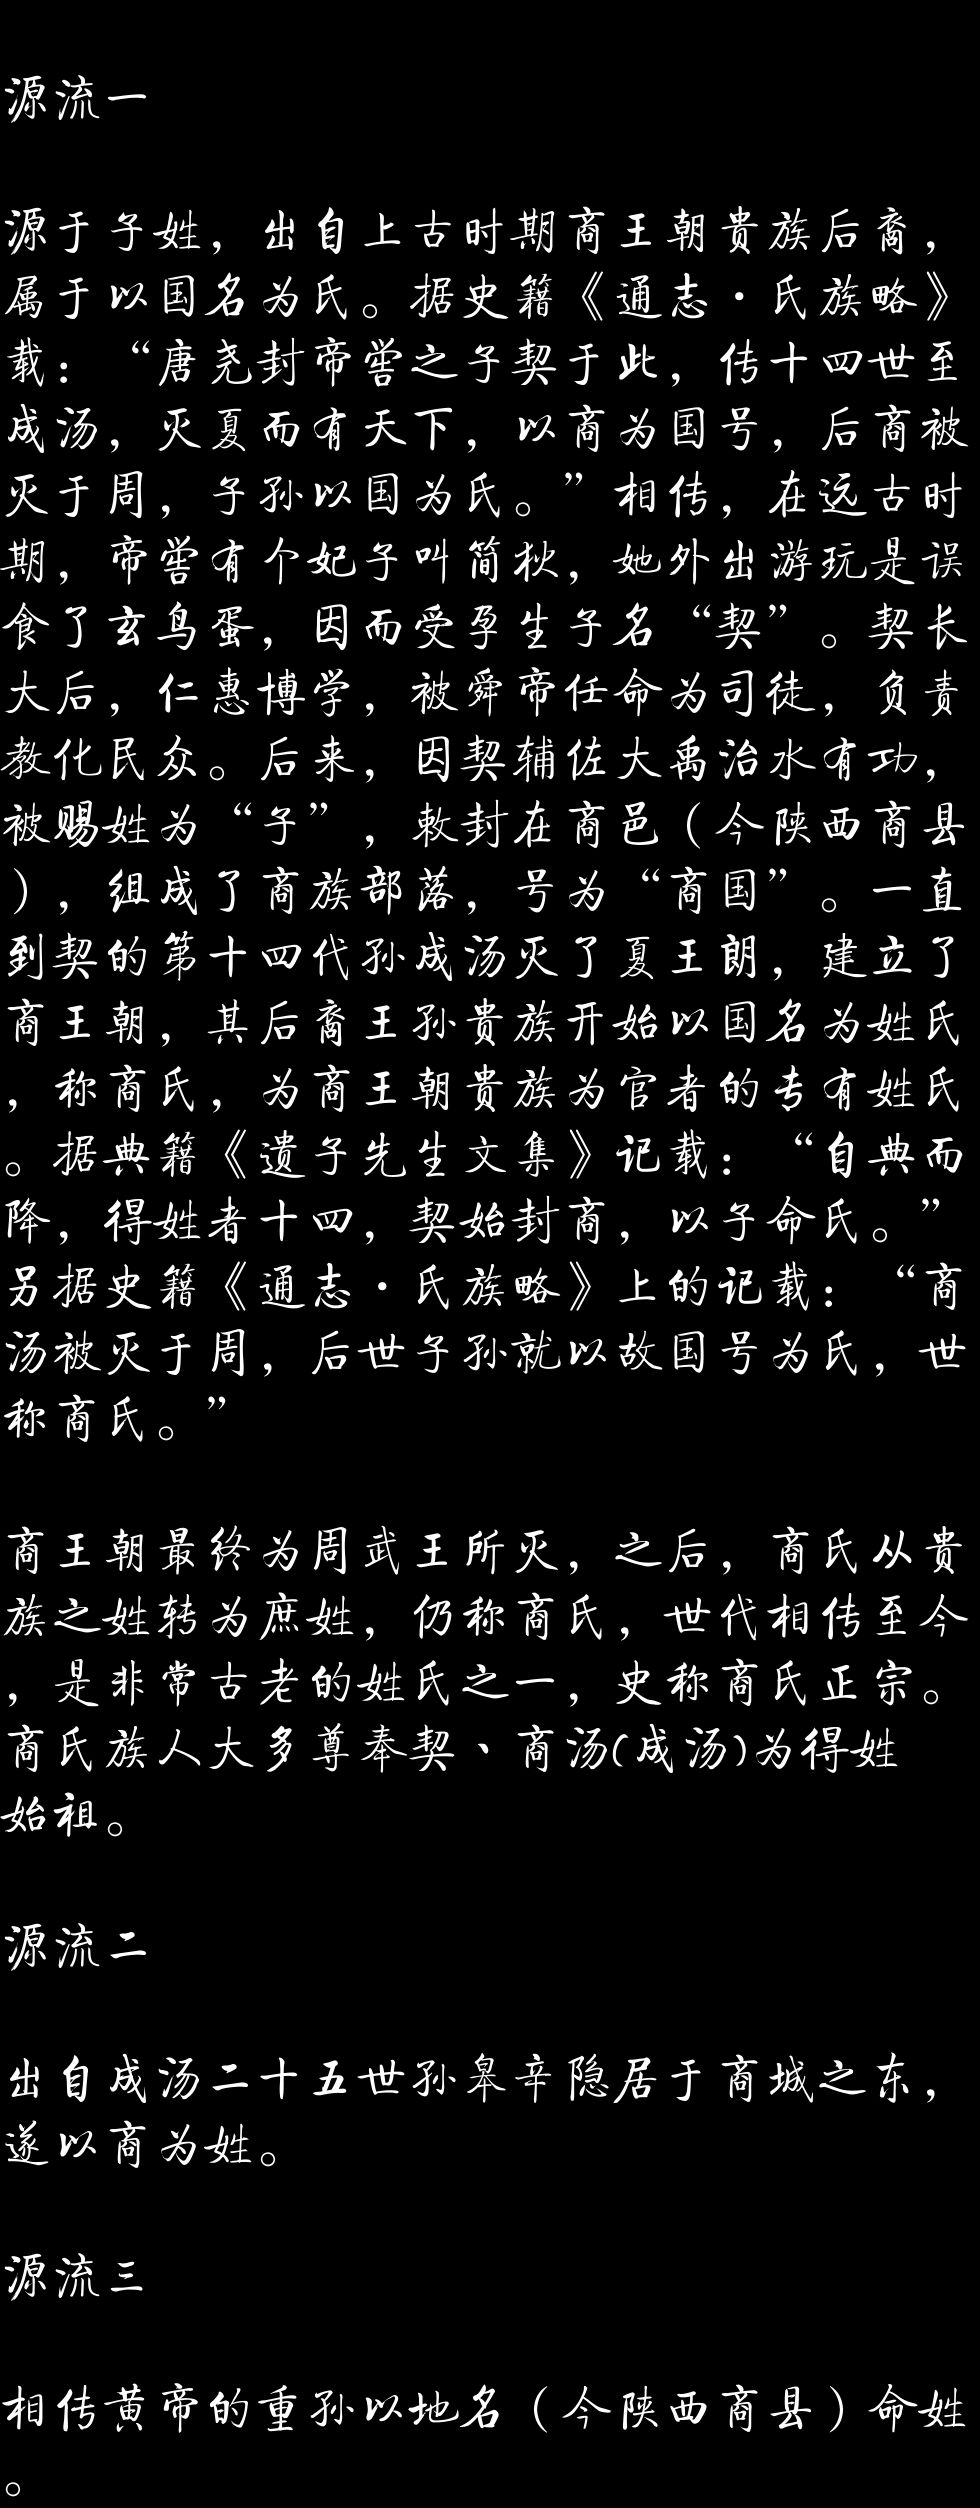 源流一
源于子姓，出自上古时期商王朝贵族后裔，
属于以国名为氏。据史籍《通志·氏族略》
载：“唐尧封帝喾之子契于此，传十四世至
成汤，灭夏而有天下，以商为国号，后商被
灭于周，子孙以国为氏。”相传，在远古时
期，帝喾有个妃子叫简狄，她外出游玩是误
食了玄鸟蛋，因而受孕生子名“契”。契长
大后，仁惠博学，被舜帝任命为司徒，负责
教化民众。后来，因契辅佐大禹治水有功，
被赐姓为“子”，敕封在商邑（今陕西商县
），组成了商族部落，号为“商国”。一直
到契的第十四代孙成汤灭了夏王朗，建立了
商王朝，其后裔王孙贵族开始以国名为姓氏
，称商氏，为商王朝贵族为官者的专有姓氏
。据典籍《遗子先生文集》记载：“自典而
降，得姓者十四，契始封商，以子命氏。”
另据史籍《通志·氏族略》上的记载：“商
汤被灭于周，后世子孙就以故国号为氏，世
称商氏。”
商王朝最终为周武王所灭，之后，商氏从贵
族之姓转为庶姓，仍称商氏，世代相传至今
，是非常古老的姓氏之一，史称商氏正宗。
商氏族人大多尊奉契、商汤(成汤)为得姓
始祖。
源流二
出自成汤二十五世孙皋辛隐居于商城之东，
遂以商为姓。
源流三
相传黄帝的重孙以地名（今陕西商县）命姓
。